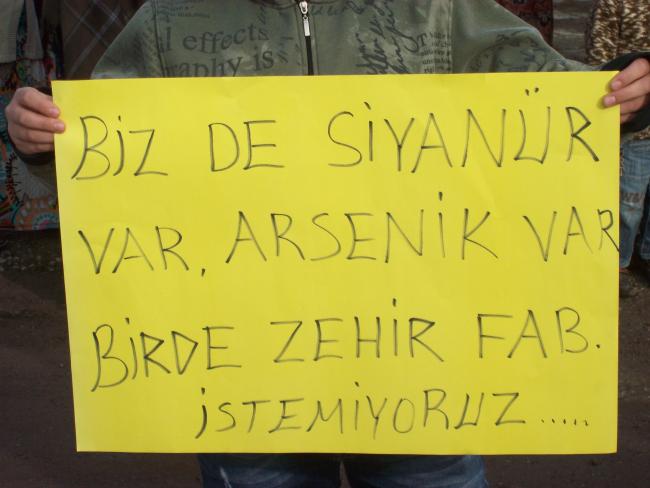 l effects
graphy is
BİZ DE SİYANÜR
VAR, ARSENİK VAR
BİRDE ZEHİR FAB.
İSTEMİYORUZ.....